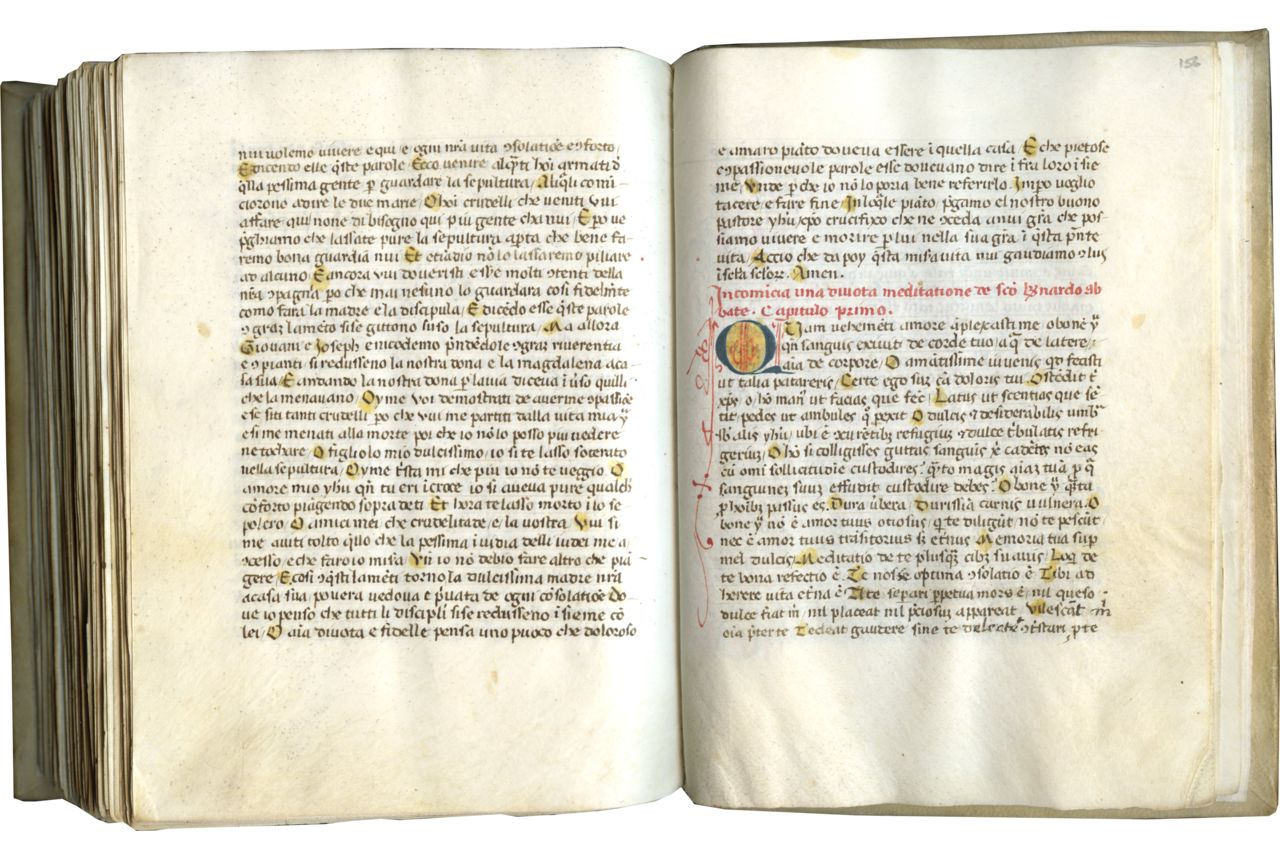 nui volemo vivere e qui e ogni nr̃a vita ɔsolatiõe e ɔforto ·
E dicento elle q̃ste parole / Ecco venire alq̃ti hoĩ armati d̃
q̃lla pessima gente ꝑ guardare la sepultura / Aliq̃li comĩ-
ciorono adire le due marie / O hoi crudelli che veniti vui
affare qui none di bisegno qui piu gente cha nui / E ꝑo ve
p̃ghiamo che lassate pure la sepultura apta che bene fa-
remo bona guardia nui / Et etiãdio nõ lo lassaremo piliare
ad alcuno / E ancora vui doveristi esse molti ɔtenti della
nr̃a ɔpagnia ꝑo che mai nesuno lo guardara cosi fidelm̃te
como fara la madre e la discipula / E dicẽdo esse q̃ste parole
ɔ grãr lamẽto si se gittono suso la sepultura / Ma allora
Giovani e Joseph e nicodemo p̃ndẽdole ɔ grãr riverentia
e ɔ pianti si redusseno la nostra dona e la magdalena aca-
sa sua / E andando la nostra dona ꝑ la via diceva ĩ ṽso quilli
che la menavano / Oyme voi demostrati de averme ɔpassiõe
e se siti tanti crudelli ꝑo che vui me partiti dalla vita mia
e si me menati alla morte poi che io nõ lo posso piu vedere
ne tochare / O figliolo mio dulcissimo / io si te lasso soterato
nella sepultura / Oyme t̃sta mi che piu io nõ te veggio / O
amore mio yh̃u qñ tu eri ĩ croce io si aveva pure qualch
cõforto piãgendo sopra de ti / Et hora te lasso morto ĩ lo se-
polcro / O amici mei che crudelitade e la vostra / Vui si
me aviti tolto q̃llo che la pessima ĩvidia delli iudei me a
ɔcesso / e che faro io mis̃a / Vñ io nõ debio fare altro che piã
gere / E cosi ɔ q̃sti lamẽti torno la dulcissima madre nr̃a
acasa sua povera vedova e p̃vata de ogni cõsolatiõe / Do-
ve io penso che tutti li discipli si se redusseno ĩsieme cõ
lei / O aĩa divota e fidelle pensa uno puoco che doloroso
156
e amaro piãto doveva essere ĩ quella casa / E che pietose
ɔpassionevole parole esse dovevano dire ĩ fra loro ĩsie
me / Vnde ꝑ che io nõ lo poria bene referirlo / Imꝑo voglio
tacere e fare fine / In loq̃le piãto / p̃gamo el nostro buono
pastore yh̃u xp̃o crucifixo che ne ɔceda a nui gr̃a che pos-
siamo vivere e morire ꝑ lui nella sua gr̃a ĩ q̃sta p̃nte
vita / Accio che da poy q̃sta mis̃a vita nui gaudiamo ɔ lui
ĩ sec̃la sec̃lor̃ / Amen .
Incomicia una divota meditatione de scõ b̃nardo ab
bate · Capitulo primo .
Quam vehemẽti amore ãplexasti me o bone yh̃u
qñ sanguis exivit de corde tuo / aq̃ de latere /
aĩa de corpore / O amãtissime iuvenis qd fecisti
ut talia patareris / Certe ego suz cã doloris tui / Ostẽdit t̃
xp̃s o hõ man᷒ ut facias que fec̃ / Latus ut scentias que sẽ
tit pedes ut ambules q̃ ꝑexit / O dulcis ɔ desiderabilis umb᷒
sb̃ alis yh̃u / ubi ẽ xcurẽtibz refugiuz ɔ dulce t̃bulatis refri
geriuz / O hõ si colligisses guttas sanguis x̃ cadẽtes nõ eas
cũ omĩ sollicitudiẽ custodires / q̃to magis aĩaz tuã ꝑ q̃
sanguinez suuz effudit custodire debes / O bone yh̃u q̃ta
ꝑ hoĩbz passus es / Dura v̾bera / Durissĩa carnis vulnera / O
bone yh̃u nõ ẽ amor tuus otiosus / q̃ te diligũt / nõ te pescũt ·
nec ẽ amor tuus trãsitorius sz et̾nus / Memoria tua sup
mel dulcis / Meditatio de te plusq̃z cibz suavis / Loq̃ de
te bona refectio ẽ / Te nosse optima ɔsolatio ẽ / Tibi ad
herere vita et̾na ẽ / A te separi ꝑpetua mors ẽ / nil queso ·
dulce fiat m̃ / nil placeat nil p̃ciosuz appareat / Vilescãt m̃
oĩa p̃ter te / Tedeat gaudere sine te